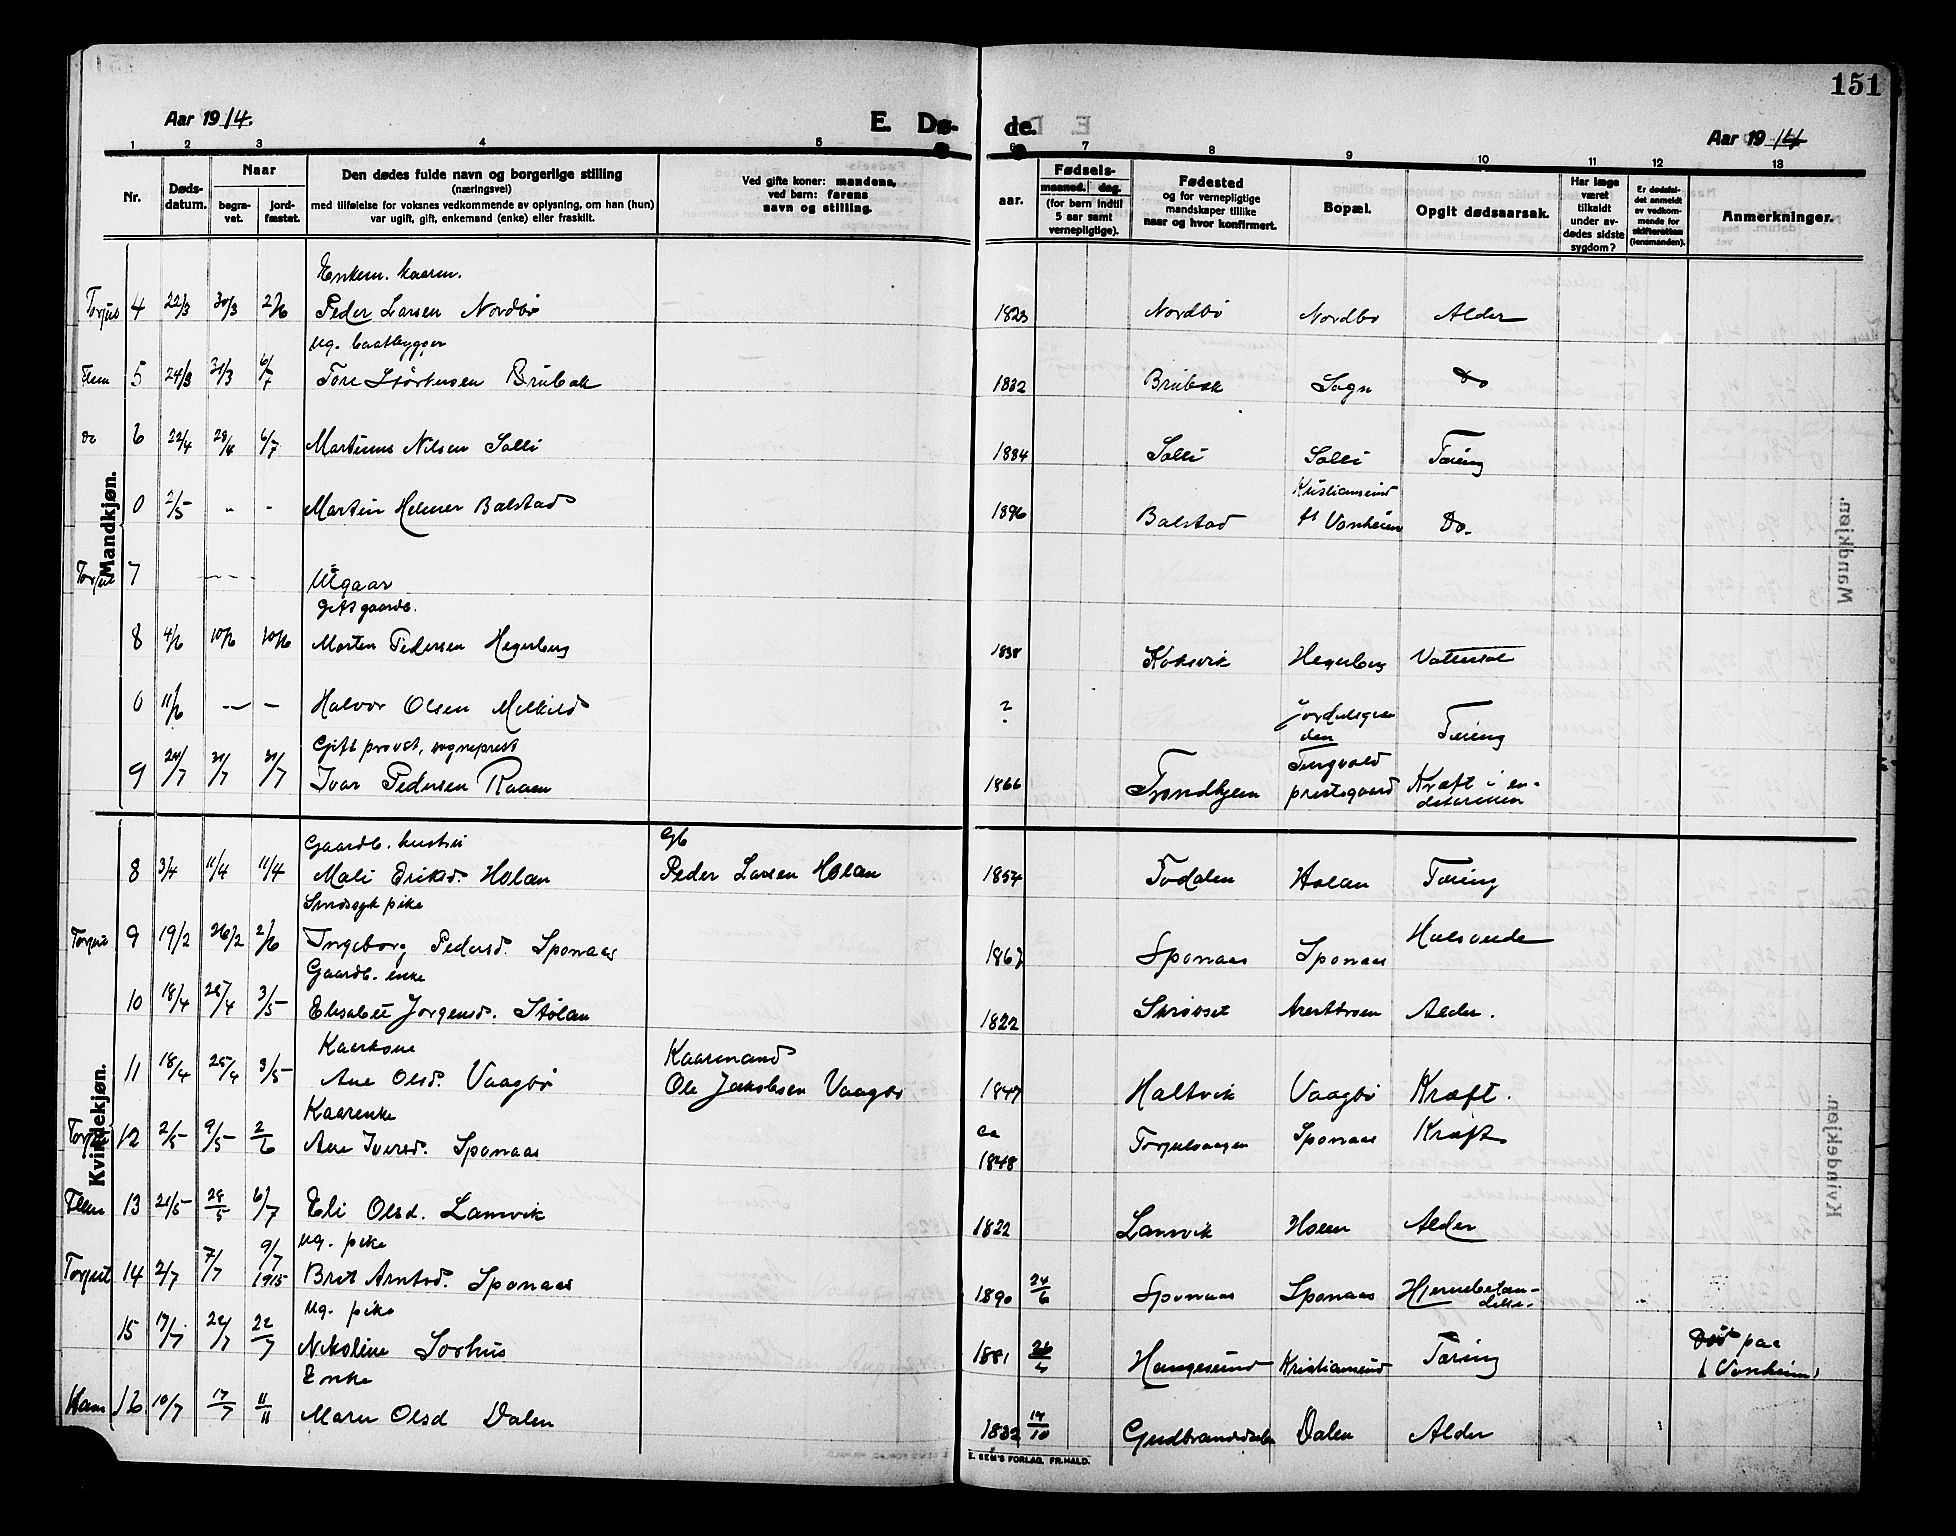 151
Aar 1914.
E. Dø- de.
Aar 1914
1 2 3 4 5 6 7 8 9 10 11 12 13
Nr.
Døds-datum.
Naar
begra-vet.
jord-fæstet.
Den dødes fulde navn og borgerlige stilling
(næringsvei)
med tilføielse for voksnes vedkommende av oplysning, om han (hun)
var ugift, gift, enkemand (enke) eller fraskilt.
Ved gifte koner: mandens,
ved børn: farens
navn og stilling.
aar.
Fødsels-
maaned. dag.
(for børn indtil
5 aar samt
vernepligtige).
Fødested
og for vernepligtige
mandskaper tillike
naar og hvor konfirmert.
Bopæl.
Opgit dødsaarsak.
Har læge
været
tilkaldt
under av-
dødes sidste
sygdom?
Er dødsfal-
det anmeldt
av vedkom-
mende for
skifteretten
(lensmanden).
Anmerkninger.
Mandkjøn.
Enkem. kaarm.
4 22/3 30/3 2/6 Peder Larsen Nordbø 1823 Nordbø Nordbø Alder
ug. baatbygger
Flem 5 24/3 31/3 6/7 Tore Brubak 1832 Brubak Sogn Do
Do 6 22/4 28/4 6/7 Martinus Nilsen Solli 1884 Solli Solli Tæring
Kristiansund
0 2/5 - - Martin Helmer Bolstad 1896 Bolstad Vonheim Do.
7 - - - Utgaar
Gift gaardb.
8 4/6 10/6 10/6 Morten Pedersen Hegerberg 1838 Koksvik Hegerberg Vattersot
0 11/6 - - Halvor Olsen Melkild ? Tæring
Gift provst, sogneprest
9 24/7 31/7 31/7 Ivar Pedersen Raaen 1866 Trondhjem Tingvold prestegaard Kræft i en-
Kvindekjøn.
Gaardb. hustru Gb
8 3/4 11/4 11/4 Mali Eriksd. Holan Peder Larsen Holan 1854 Todalen Holan Tæring
Sindssyk pike
9 19/2 26/2 2/6 Ingeborg Pedersd. Sponaas 1867 Sponaas Sponaas
Gaardb. enke
10 18/4 28/4 3/5 Elisabet Jørgensd. Stølan 1822 Alder.
Kaarkone Kaarmand
11 18/4 25/4 3/5 Ane Olsd. Vaagbø Ole Jakobsen Vaagbø 1847 Holtvik Vaagbø Kræft.
Kaarenke
12 2/5 9/5 2/6 Ane Iversd. Sponaas ca 1848 Torjulvaagen Sponaas Kræft
Flem 13 21/5 28/5 6/7 Eli Olsd. Lamvik 1822 Lamvik Hoem Alder
ug. pike
14 2/7 7/7 9/7 1915 Brit Arntsd. Sponaas 1890 24/6 Sponaas Sponaas Hjernebetæn-delse.
ug. pike
15 17/7 22/7 22/7 Nikoline Sørhus 1881 26/4 Haugesund Kristiansund Tæring Død paa (Vonheim)
Enke
16 10/7 17/7 11/11 Maren Olsd Dalen 1832 14/10 Gudbrandsdalen Dalen Alder
E. SEM'S FORLAG, FR.HALD.